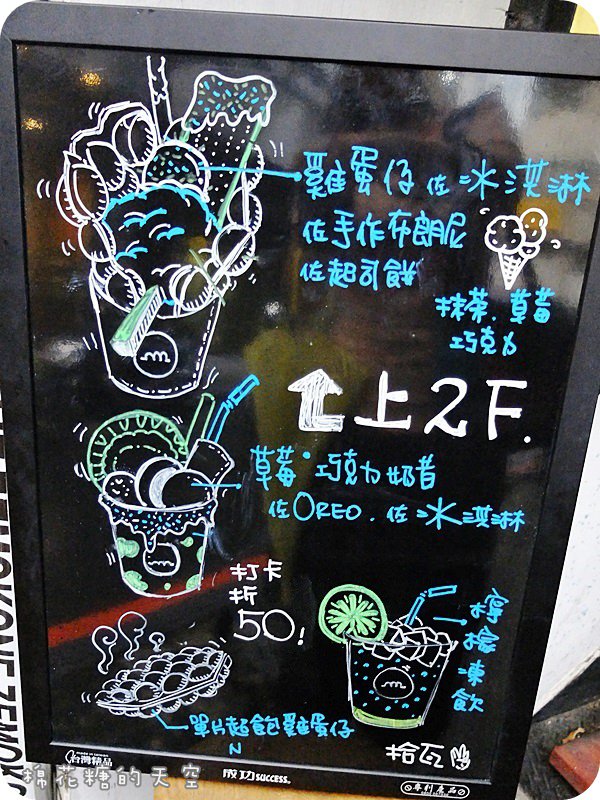 雞蛋仔 佐 冰淇淋
佐手作布朗尼
佐起司餅
抹茶、草莓
巧克力
上2F.
草莓·巧克力奶昔
佐OREO、佐 冰淇淋
打卡
折
50!
檸檬凍飲
單片起飽雞蛋仔
N
拾瓦
台灣精品
成功 SUCCESS.
專利產品
棉花糖的天空